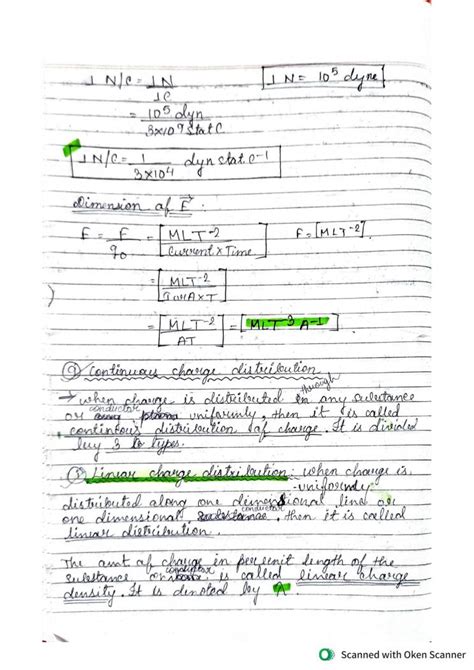 1 N/C = 1N 1 N = 10⁵ dyne
1C
= 10⁵ dyn
3×10⁹ Stat C
1 N/C = 1 dyn stat C⁻¹
3×10⁴
Dimension of E⃗ :
E = F = [MLT⁻² F = [MLT⁻²]
q₀ Current × Time]
= [MLT⁻²
I or A × T]
= [MLT⁻² = [MLT⁻³ A⁻¹]
AT]
Continuous charge distribution
→ when charge is distributed in through any substance
or conductor uniformly, then it is called
continous distribution of charge. It is divided
by 3 to types.
Linear charge distribution: when charge is
uniformly
distributed along one dimensional line or
one dimensional conductor, then it is called
linear distribution.
The amt of charge in per unit length of the
substance or conductor is called linear charge
density. It is denoted by λ.
Scanned with Oken Scanner